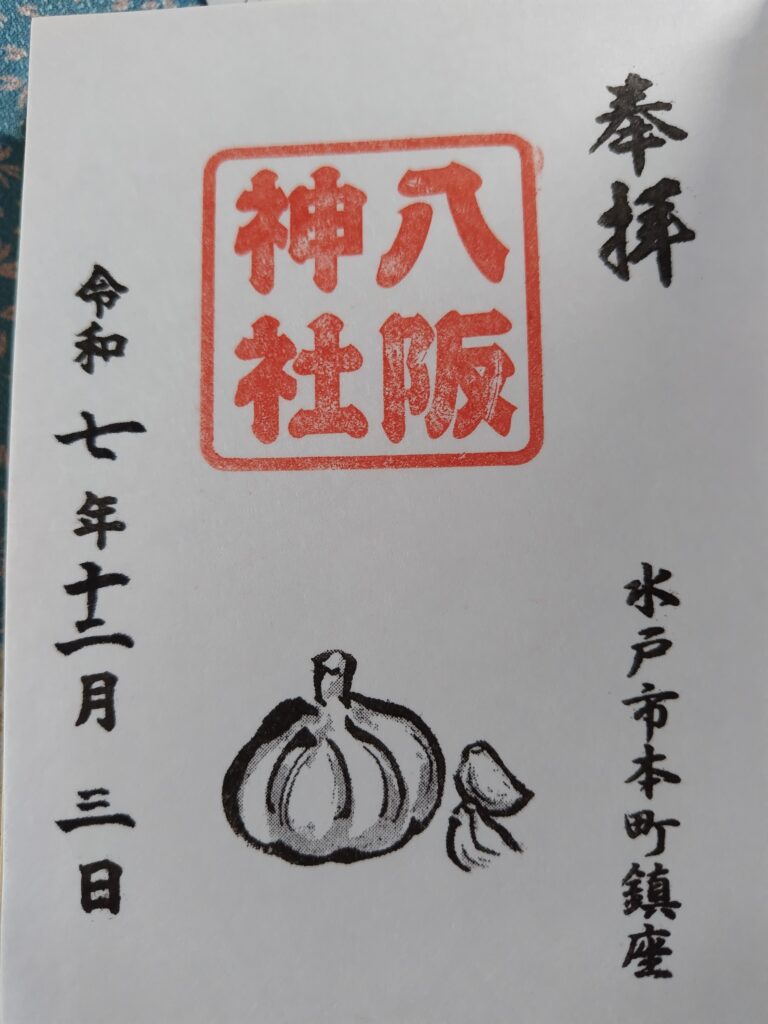 奉拝
水戸市本町鎮座
八阪
神社
令和七年十二月三日